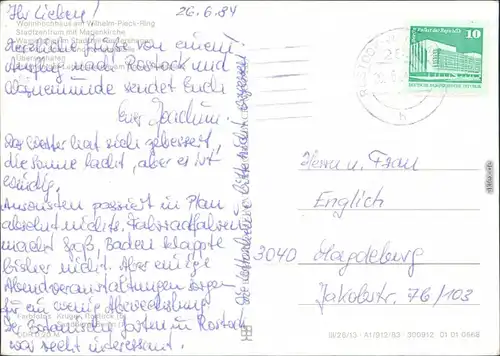 Ihr Lieben! 26.6.84
Wohnhochhaus am Wilhelm-Pieck-Ring
Stadtzentrum mit Marienkirche
Herzliche Grüße von einem
Ausflug nach Rostock und
Warnemünde sendet Euch
Euer Joachim
Das Wetter hat sich gebessert,
die Sonne lacht, aber es ist
windig.
Ansonsten passiert im Plan
absolut nichts. Fahrradfahren
macht Spaß, Baden klappte
bisher nicht. Aber einige
Abendveranstaltungen sorgen
für ein wenig Abwechslung
Der Botanische Garten in Rostock
war recht interessant.
bitte nicht vergessen
Palast der Republik
10
DEUTSCHE DEMOKRATISCHE REPUBLIK
Herrn u. Frau
Englich
3040 Magdeburg
Jakobstr. 7b/103
III/26/13 · A1/912/83 · 300912 01 01 0668